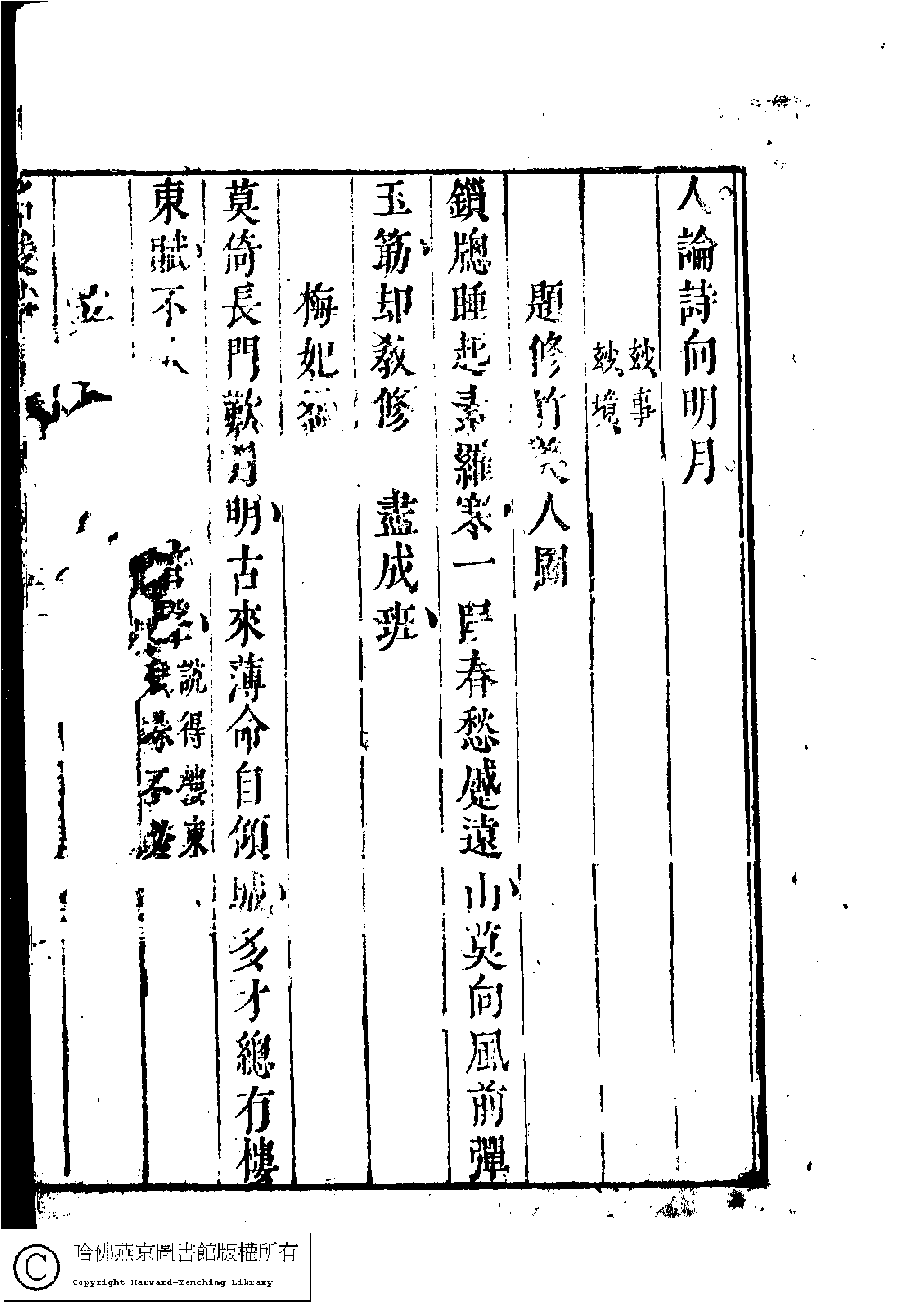 人論詩向明月
玅事
玅境
題修竹美人圖
鎖牕睡起素羅寒一㫷春愁蹙遠山莫向風前彈
玉筯却教修 盡成班
梅妃
莫倚長門歎月明古來薄命自傾城多才總有樓
東賦不
說得樓東
不
哈佛燕京圖書館版權所有
Copyright Harvard-Yenching Library